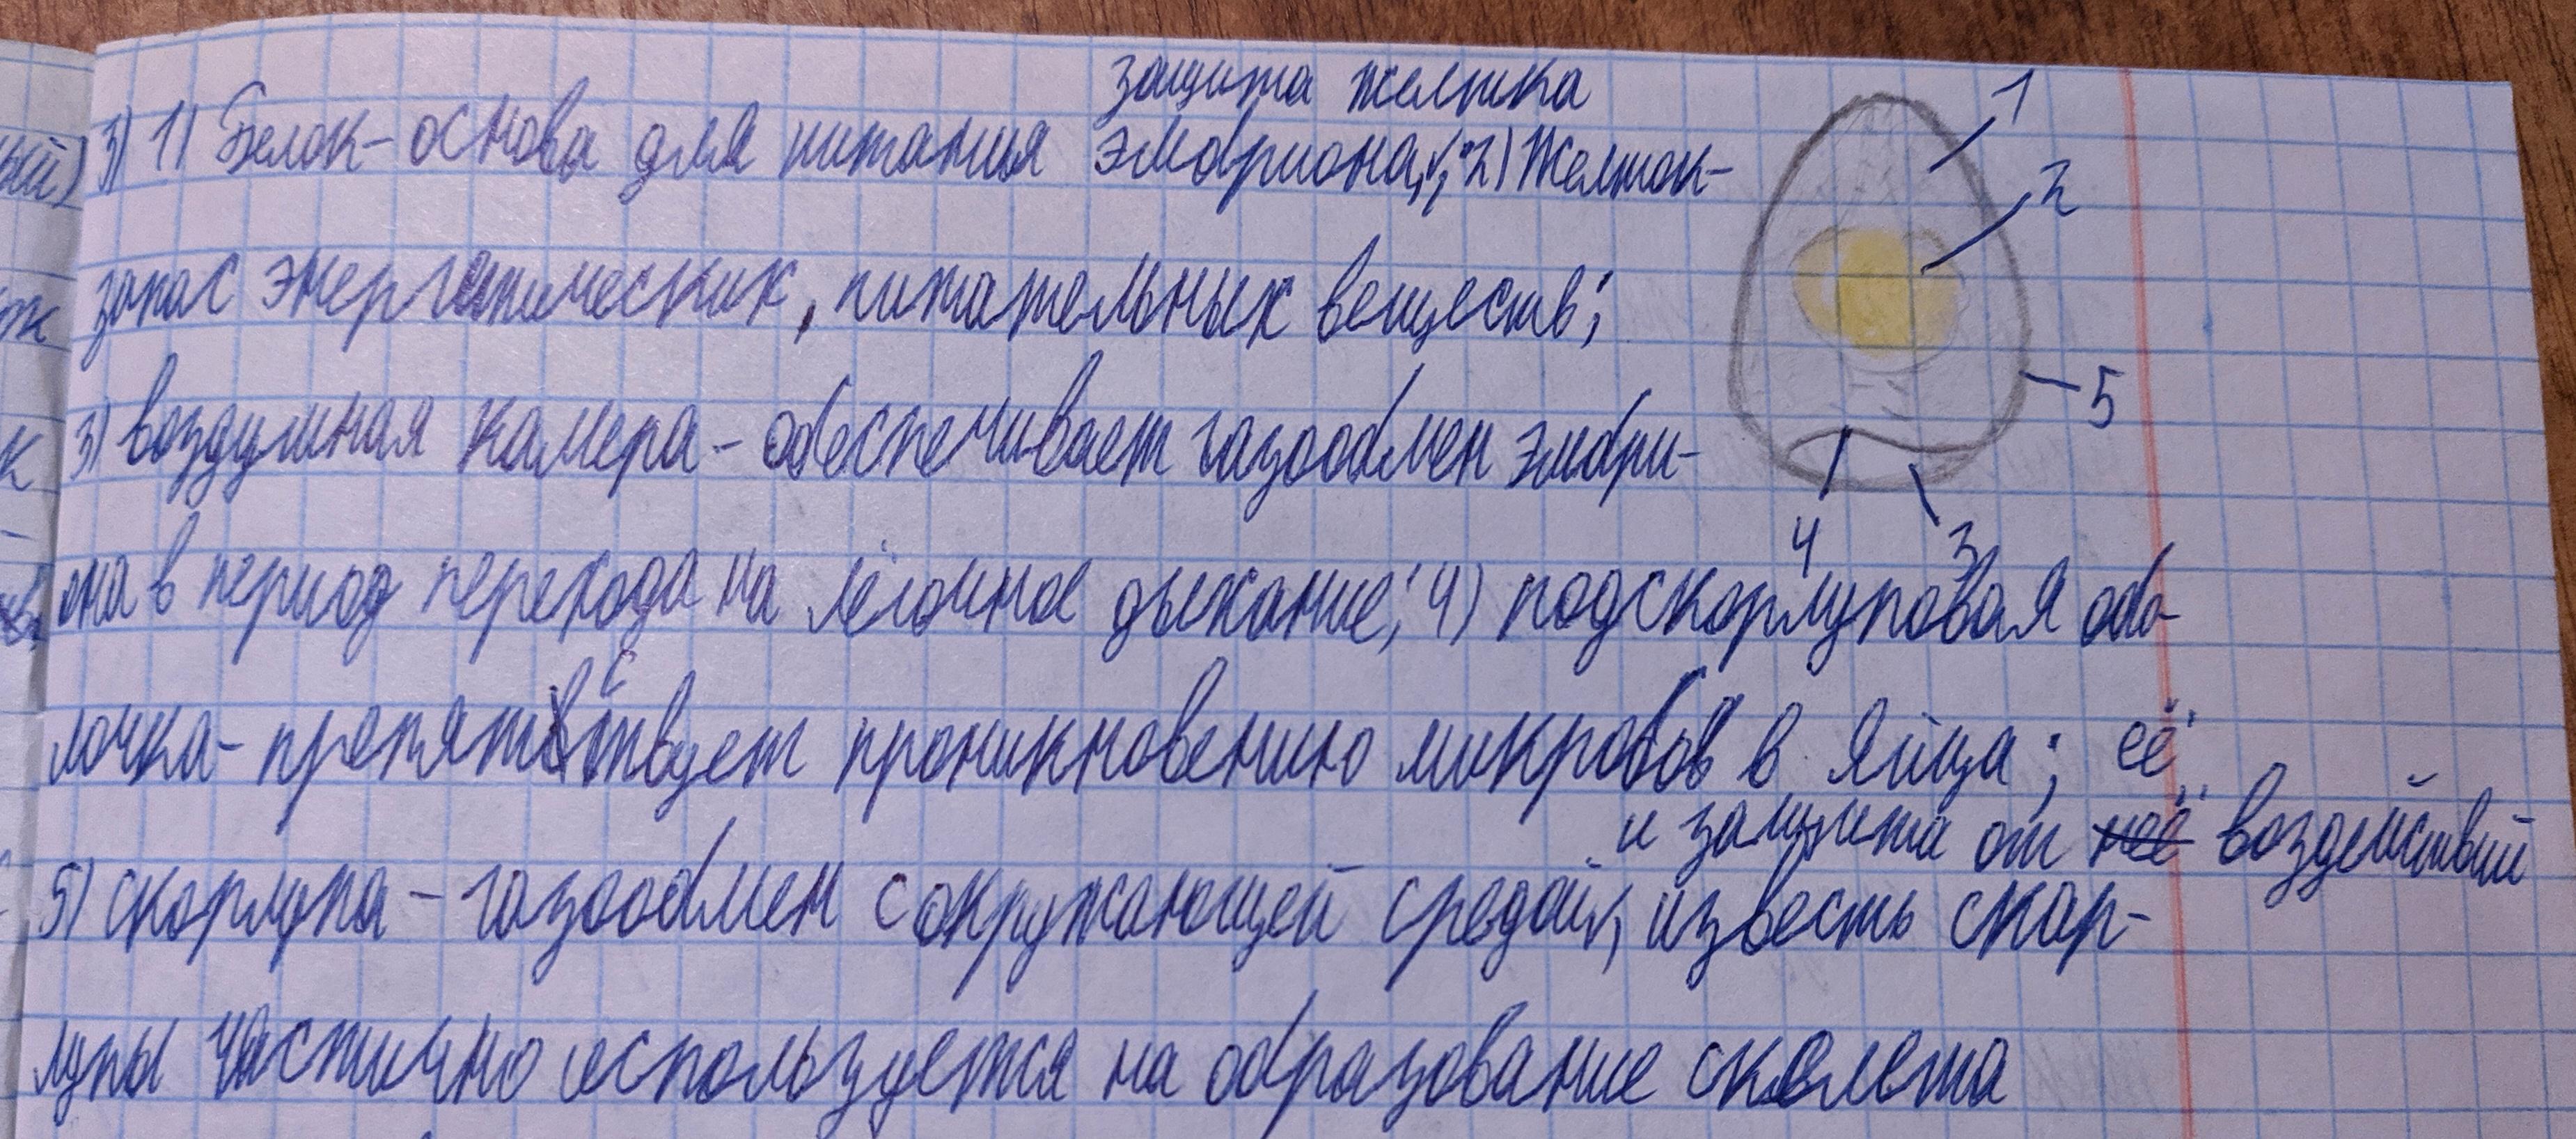 защита желтка
3) 1) Белок - основа для питания эмбриона, ; 2) Желток -
запас энергетических, питательных веществ;
3) воздушная камера - обеспечивает газообмен эмбри-
она в период перехода на лёгочное дыхание; 4) подскорлуповая обо-
лочка - препятствует проникновению микробов в яйца; её
и защита от неё воздействий
5) скорлупа - газообмен с окружающей средой, известь скор-
лупы частично используется на образование скелета
1
2
5
4
3
ый)
ж
к